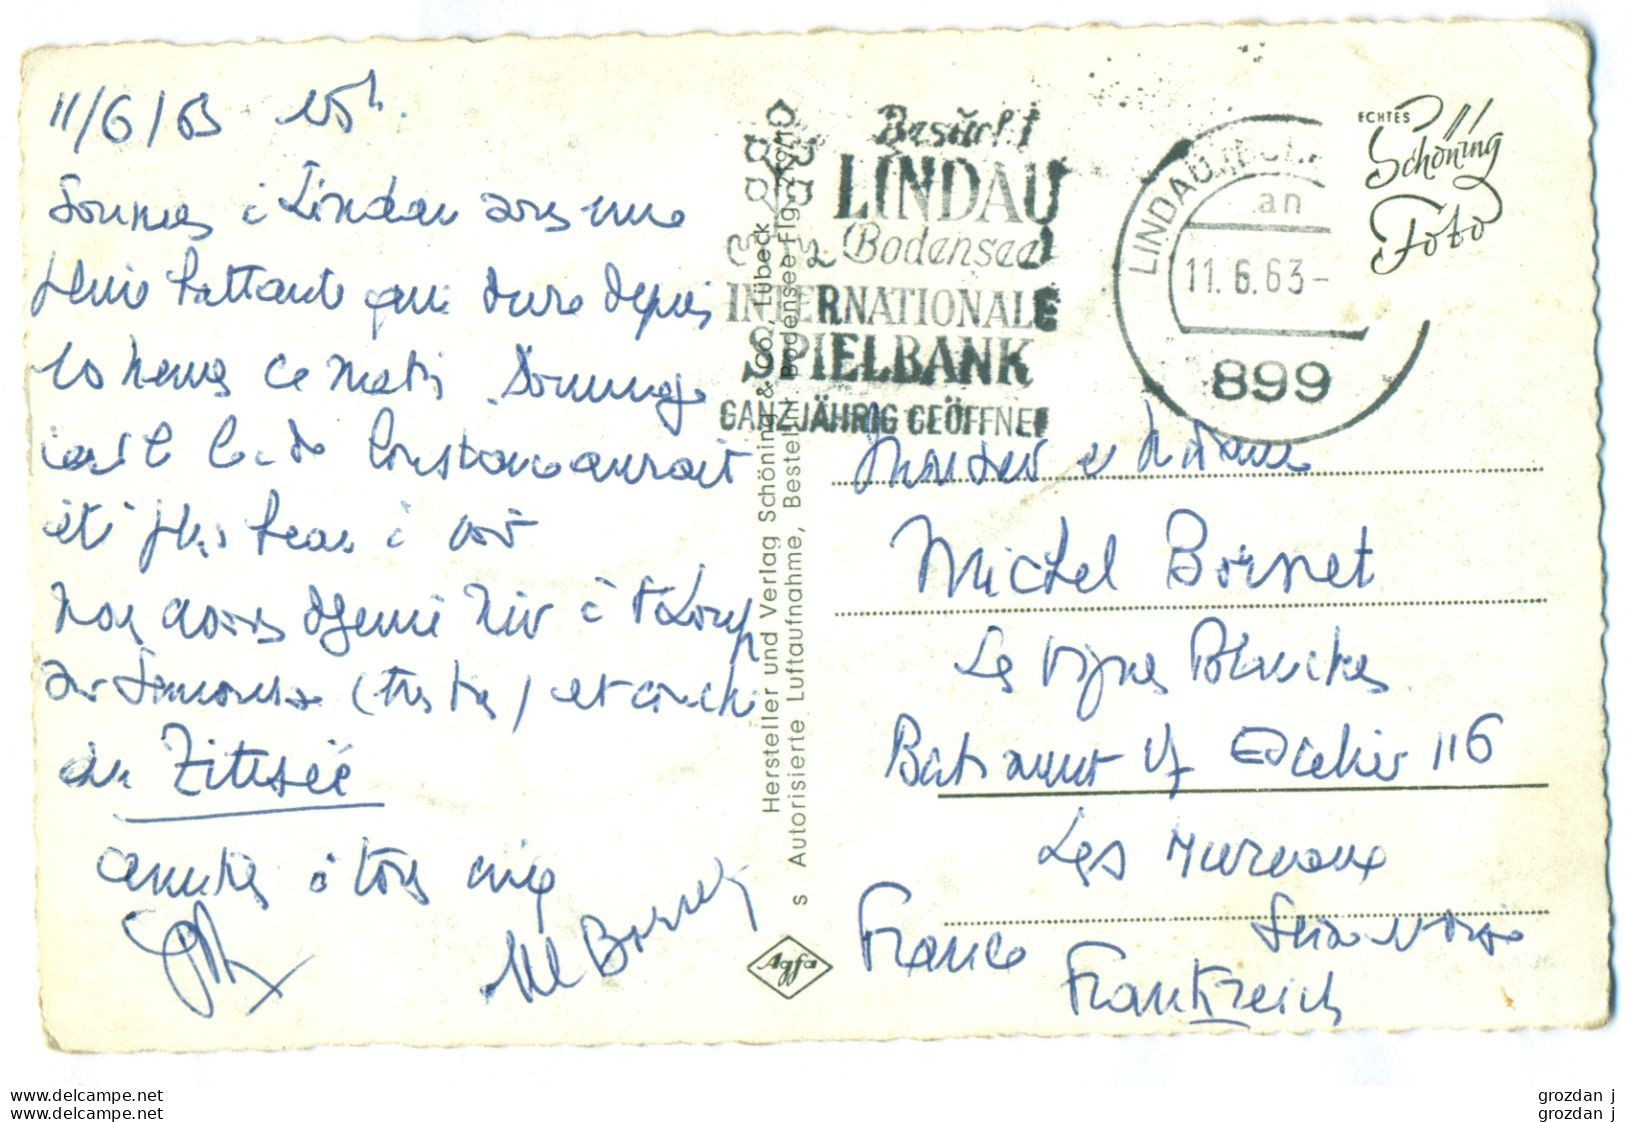 11/6/63 15h.
Sommes à Lindau sous une
pluie battante qui dure depuis
10 heures ce matin Dommage
car le lac de Constance aurait
été plus beau à voir
Nous avons déjeuné hier à St Loup
sur Semouse (truites) et couché
au Titisée
amitiés à tous
M Bornet
Besucht
LINDAU
(Bodensee)
INTERNATIONALE
SPIELBANK
GANZJÄHRIG GEÖFFNET
LINDAU (BOD.
an
11.6.63-
899
ECHTES
Schöning
Foto
Hersteller und Verlag Schöning & Co., Lübeck
s Autorisierte Luftaufnahme, Bestell-Nr. Bodensee Flg.
Agfa
Monsieur et Madame
Michel Bornet
Les Vignes Blanches
Batiment Escalier 116
Les Mureaux
Seine et Oise
France
Frankreich
grozdan j
grozdan j
delcampe.net
delcampe.net